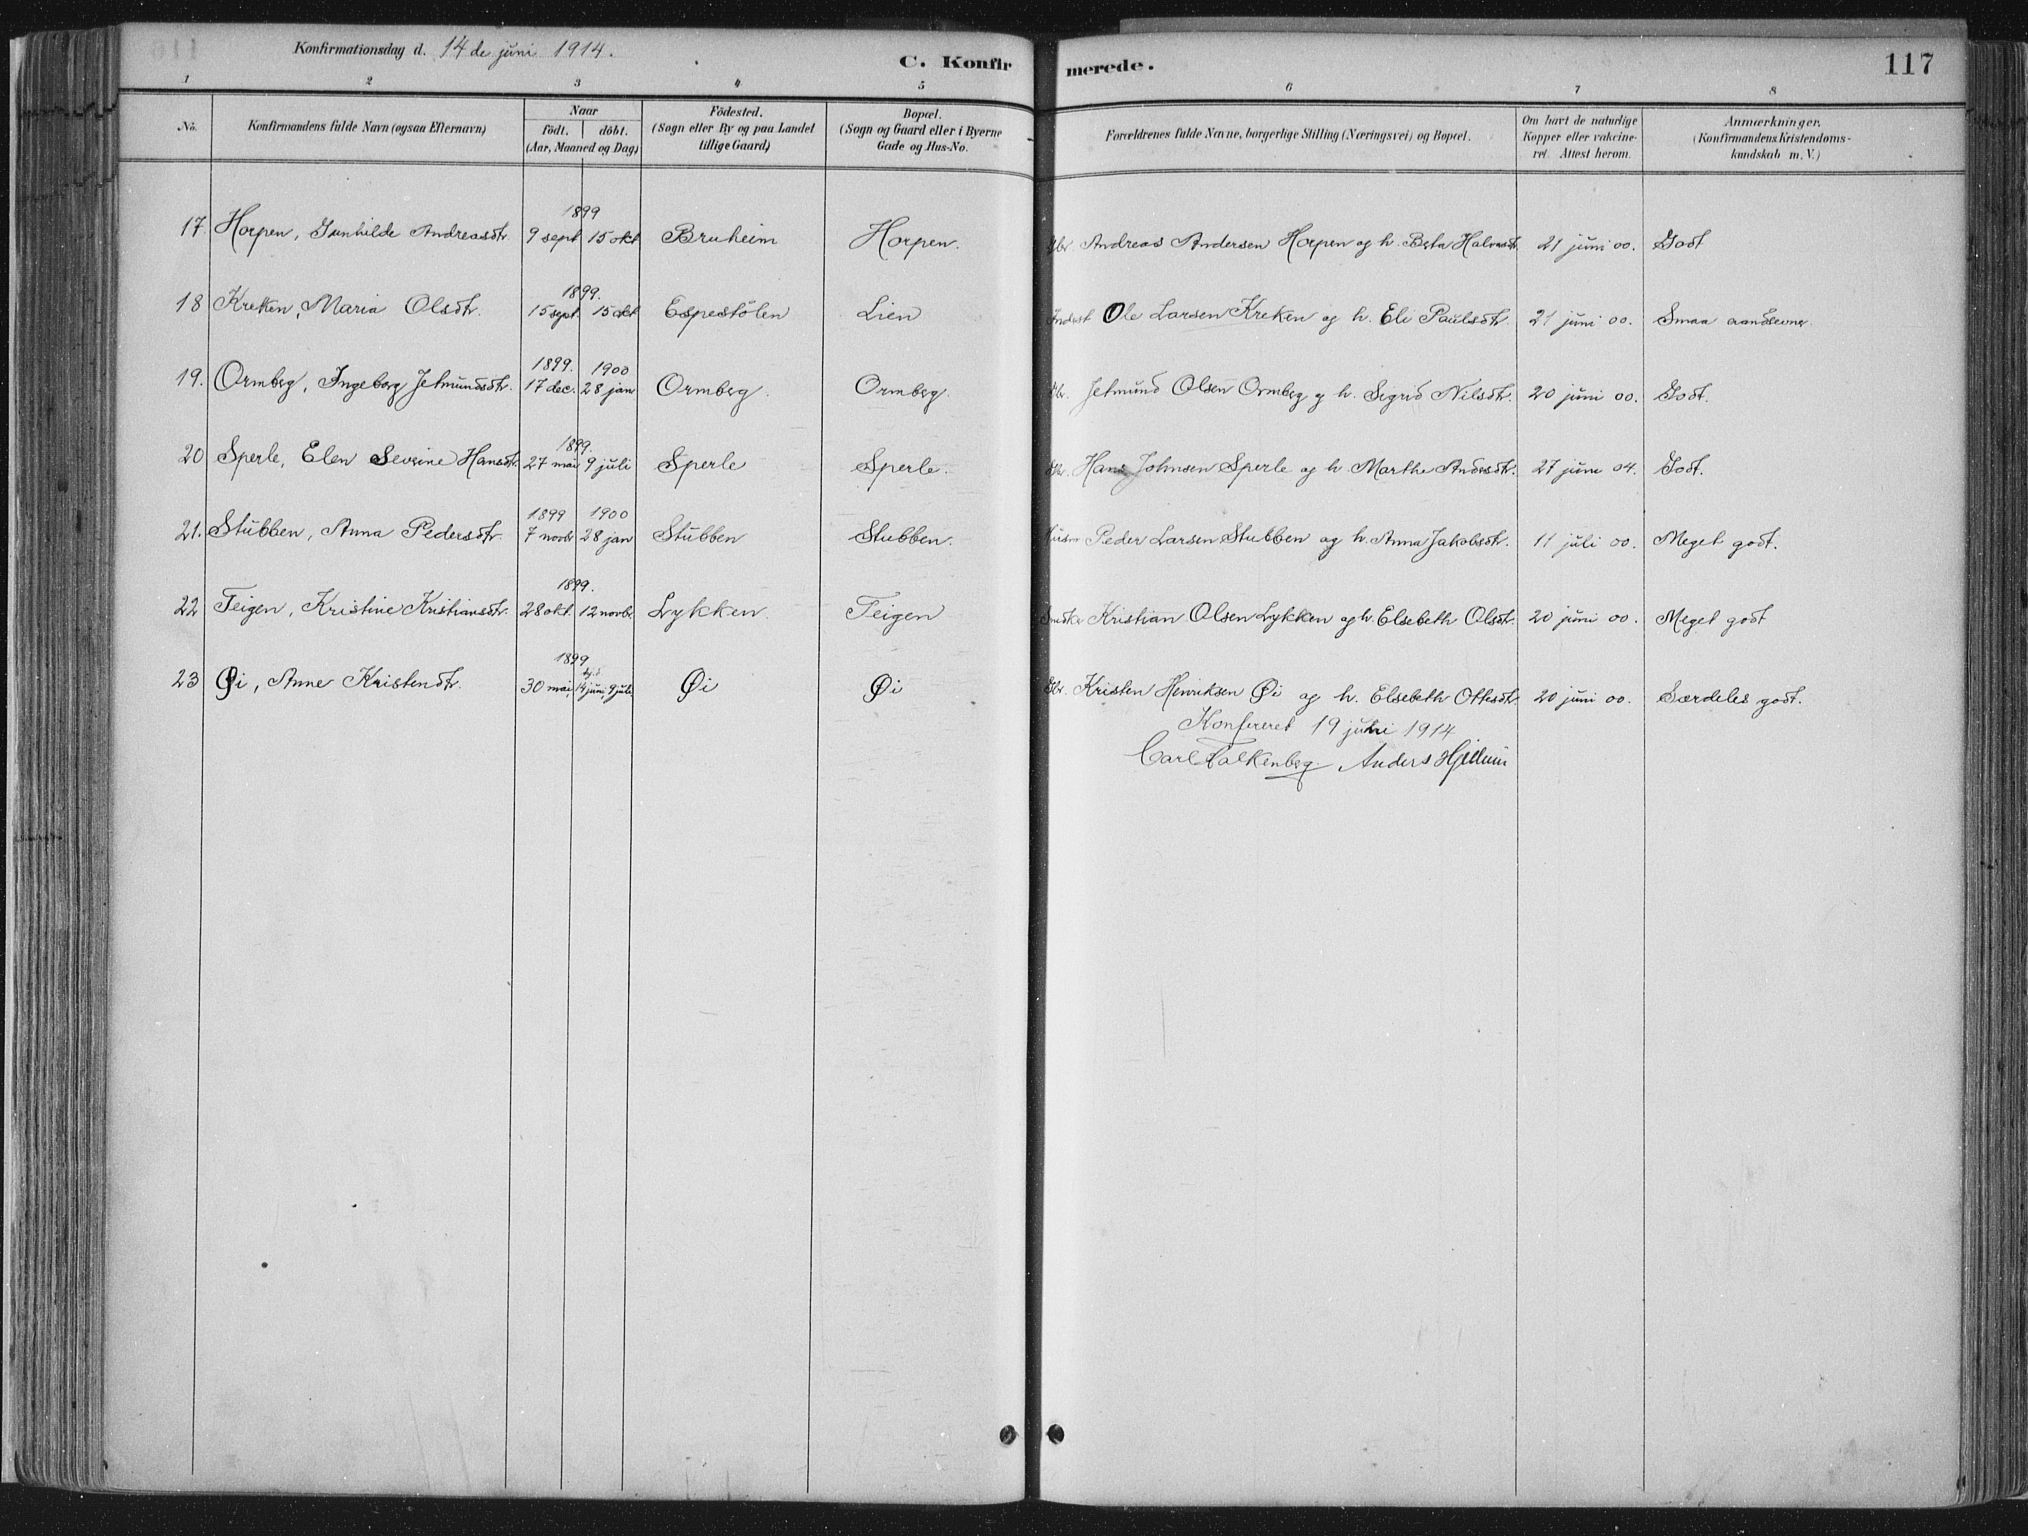 Konfirmationsdag d. 14de juni 1914.
C. Konfirmerede.
117
1 2 3 4 5 6 7 8
No. Konfirmandens fulde Navn (ogsaa Efternavn) Naar födt. döbt. (Aar, Maaned og Dag) Födested. (Sogn eller By og paa Landet tillige Gaard) Bopæl. (Sogn og Gaard eller i Byerne Gade og Hus-No. Forældrenes fulde Navne, borgerlige Stilling (Næringsvei) og Bopæl. Om havt de naturlige Kopper eller vakcineret. Attest herom. Anmærkninger. (Konfirmandens Kristendomskundskab m. V.)
1899
17. Horpen, Gunhilde Andreasdtr. 9 sept 15 okt Bruheim Horpen. Gbr. Andreas Andersen Horpen og h. Berta Halvorsdtr. 21 juni 00. Godt
1899.
18 Kreken, Maria Olsdtr. 15 sept. 15 okt Espestölen Lien Inderst Ole Larsen Kreken og h. Eli Paulsdtr. 21 juni 00. Smaa aandsevner.
1899. 1900
19. Ormberg, Ingeborg Jetmundsdtr. 17 dec. 28 jan Ormberg. Ormberg. Gbr. Jetmund Olsen Ormberg og h. Sigrid Nilsdtr. 20 juni 00. Godt.
1899.
20 Sperle, Elen Severine Hansdtr. 27 mai 9 juli Sperle Sperle. Gbr. Hans Johnsen Sperle og h Marthe Andersdtr. 27 juni 04. Godt.
1899 1900
21. Stubben, Anna Pedersdtr. 7 novbr 28 jan Stubben Stubben. Husm Peder Larsen Stubben og h. Anna Jakobsdtr. 11 juli 00. Meget godt.
1899.
22 Teigen, Kristine Kristiansdtr. 28 okt. 12 novbr. Lykken. Teigen Snedker Kristian Olsen Lykken og h. Elsebeth Olsdtr. 20 juni 00. Meget godt
1899
23 Øi, Anne Kristendtr. 30 mai 14 juni 9 juli Øi Øi Gbr. Kristen Henriksen Øi og h. Elsebeth Ottesdtr. 20 juni 00. Særdeles godt.
Konfereret 19 juni 1914
Carl Falkenberg. Anders Hjellum